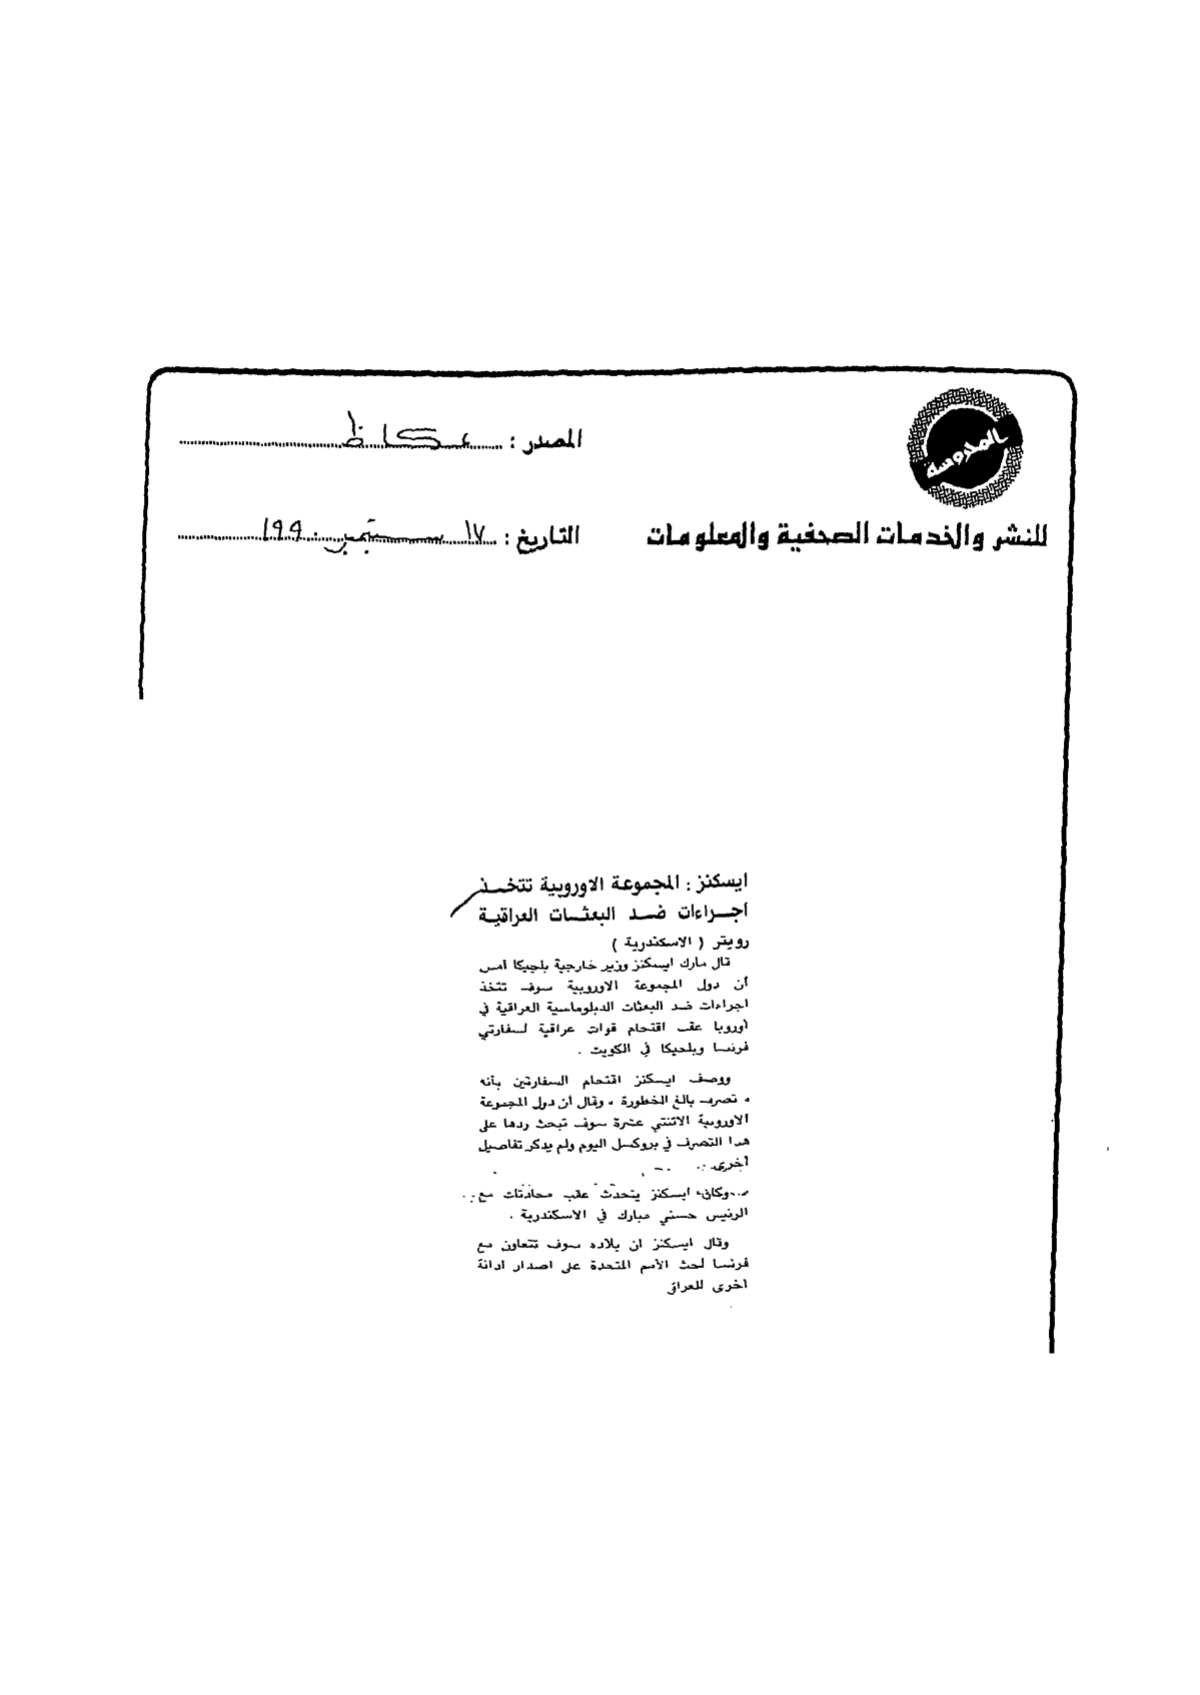 المحروسة
للنشر والخدمات الصحفية والمعلومات
المصدر : عكاظ
التاريخ : ١٧ سبتمبر ١٩٩٠
ايسكنز : المجموعة الاوروبية تتخذ
اجراءات ضد البعثات العراقية
رويتر ( الاسكندرية )
قال مارك ايسكنز وزير خارجية بلجيكا أمس
أن دول المجموعة الاوروبية سوف تتخذ
اجراءات ضد البعثات الدبلوماسية العراقية في
أوروبا عقب اقتحام قوات عراقية لسفارتي
فرنسا وبلجيكا في الكويت .
ووصف ايسكنز اقتحام السفارتين بأنه
« تصرف بالغ الخطورة » وقال أن دول المجموعة
الاوروبية الاثنتي عشرة سوف تبحث ردها على
هذا التصرف في بروكسل اليوم ولم يذكر تفاصيل
أخرى .
وكان ايسكنز يتحدث عقب محادثات مع
الرئيس حسني مبارك في الاسكندرية .
وقال ايسكنز ان بلاده سوف تتعاون مع
فرنسا لحث الأمم المتحدة على اصدار ادانة
اخرى للعراق